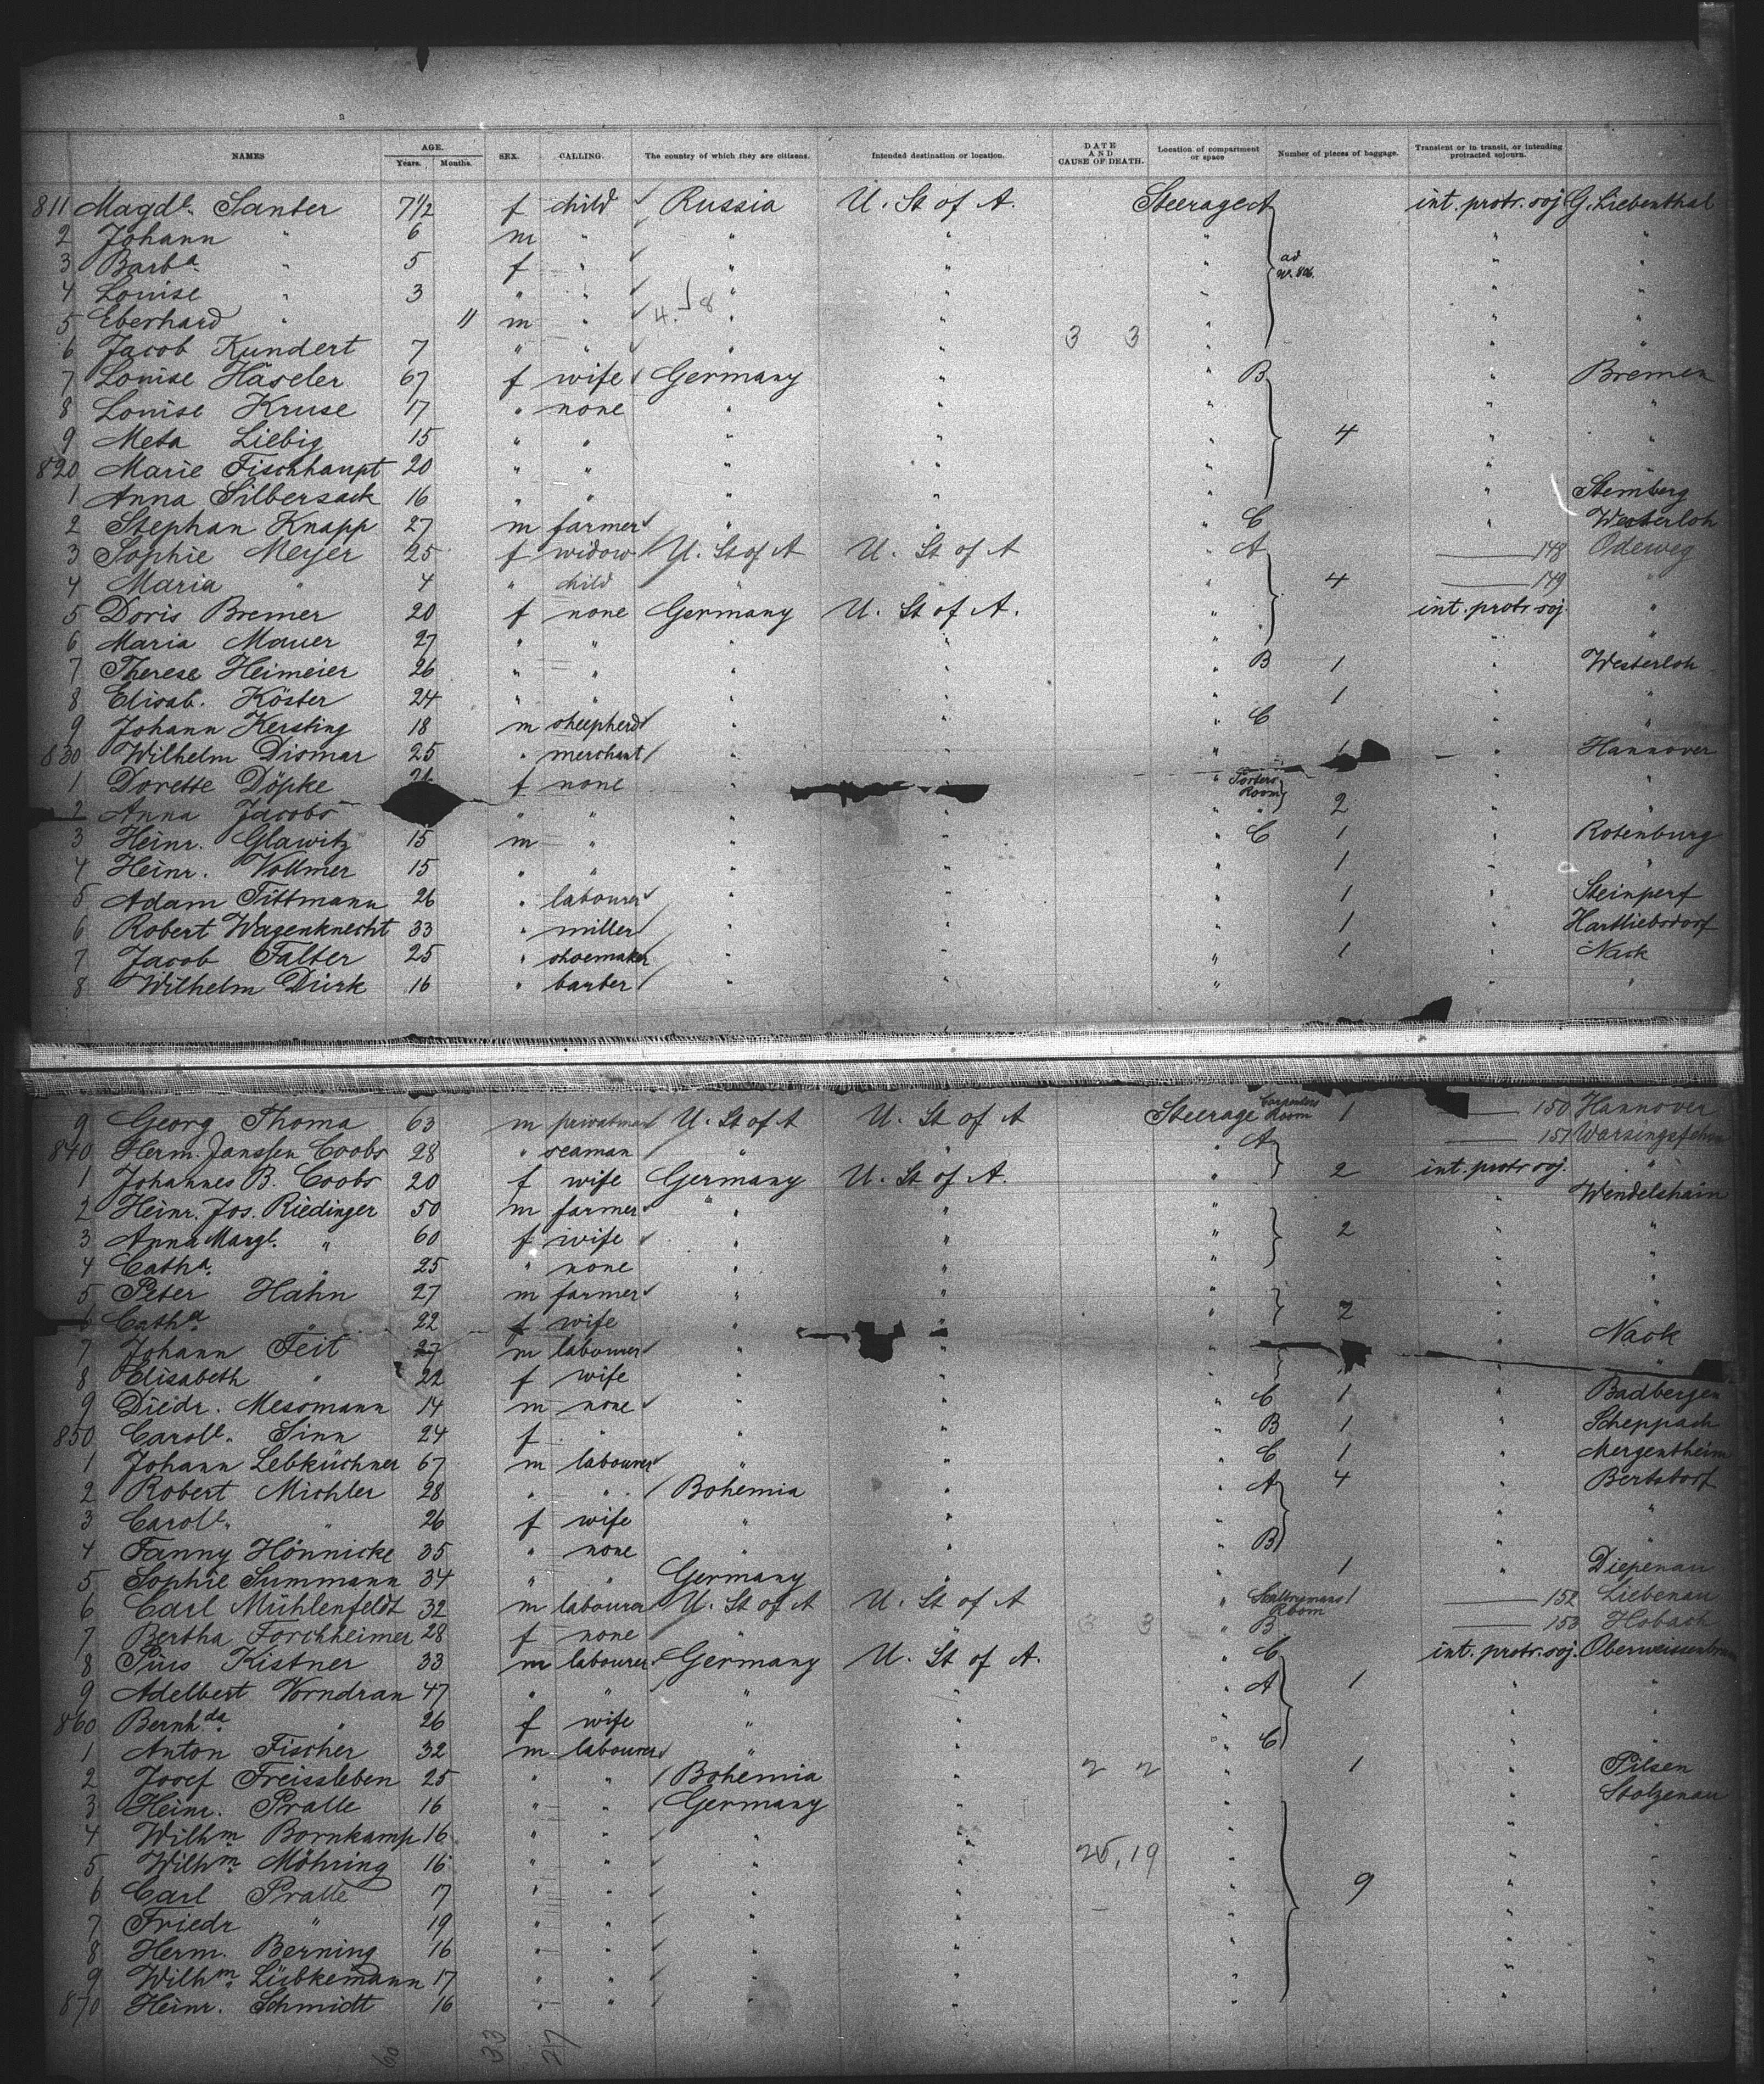 NAMES AGE. Years. Months. SEX. CALLING. The country of which they are citizens. Intended destination or location. DATE AND CAUSE OF DEATH. Location of compartment or space Number of pieces of baggage. Transient or in transit, or intending protracted sojourn.
811 Magdle. Santer 7 1/2 f child Russia U. St of A. Steerage A int. protr. soj G. Liebenthal
2 Johann " 6 m " " " " " "
3 Barba. " 5 f " " " " ad Nr. 806. " "
4 Louise " 3 " " " " " " "
5 Eberhard " 11 m " 4. 8 " " " " "
6 Jacob Kundert 7 " " " " 3 3 " " "
7 Louise Häseler 67 f wife Germany " " B " Bremen
8 Louise Kruse 17 " none " " " " "
9 Meta Liebig 15 " " " " " 4 " "
820 Marie Fischhaupt 20 " " " " " "
1 Anna Silbersack 16 " " " " " " Stemberg
2 Stephan Knapp 27 m farmer " " " C " Westerloh
3 Sophie Meyer 25 f widow U. St of A U. St of A " A 148 Odeweg
4 Maria " 4 " child " " " 4 149 "
5 Doris Bremer 20 f none Germany U. St of A. " int. protr. soj. "
6 Maria Mauer 27 " " " " " " "
7 Therese Heimeier 26 " " " " " B 1 " Westerloh
8 Elisab. Köster 24 " " " " " 1 " "
9 Johann Kersting 18 m sheepherd " " " C " "
830 Wilhelm Dismar 25 " merchant " " " 1 " Hannover
1 Dorette Döpke 21 f none " " Porters Room "
2 Anna Jacobs " " " " " 2 " "
3 Heinr. Glawitz 15 m " " " " C 1 " Rotenburg
4 Heinr. Vollmer 15 " " " " " 1 " "
5 Adam Tittmann 26 " labourer " " " 1 " Steinperf
6 Robert Wagenknecht 33 " miller " " " 1 " Hartliebsdorf
7 Jacob Falter 25 " shoemaker " " " 1 " Nack
8 Wilhelm Dirk 16 " barber " " " " "
9 Georg Thoma 63 m privatman U. St of A U. St of A Steerage Carpenters Room 1 150 Hannover
840 Herm. Janssen Coobs 28 " seaman " " " A 151 Warsingsfehn
1 Johannes B. Coobs 20 f wife Germany U. St of A. " 2 int. protr soj. "
2 Heinr. Jos. Riedinger 50 m farmer " " " " Wendelshain
3 Anna Margt. " 60 f wife " " " 2 " "
4 Catha. " 25 " none " " " " "
5 Peter Hahn 27 m farmer " " " " "
6 Catha " 22 f wife " " " 2 " "
7 Johann Feit 27 m labourer " " " Nack
8 Elisabeth " 22 f wife " " " " "
9 Diedr. Mesomann 14 m none " " " C 1 " Badbergen
850 Carole. Sinn 24 f " " " " B 1 " Scheppach
1 Johann Lebküchner 67 m labourer " " " C 1 " Mergentheim
2 Robert Michler 28 " " Bohemia " " A 4 " Bertsdorf
3 Carole. " 26 f wife " " " " "
4 Fanny Hönnicke 35 " none " " " B " "
5 Sophie Summann 34 " " Germany " " 1 " Diepenau
6 Carl Mühlenfeldt 32 m labourer U. St of A U. St of A " Room 1 152 Liebenau
7 Bertha Forchheimer 28 f none " " 3 3 " B 153 Hobach
8 Pius Kistner 33 m labourer Germany U. St of A. " C int. protr. soj. Oberweissenbrunn
9 Adelbert Vorndran 47 " " " " " A 1 " "
860 Bernhda. " 26 f wife " " " " "
1 Anton Fischer 32 m labourer " " " C " "
2 Josef Freissleben 25 " " Bohemia " 2 2 " 1 " Pilsen
3 Heinr. Pralle 16 " " Germany " " " Stolzenau
4 Wilhm. Bornkamp 16 " " " " " " "
5 Wilhm. Möhring 16 " " " " 25, 19 " " "
6 Carl Pralle 17 " " " " " 9 " "
7 Friedr " 19 " " " " " " "
8 Herm. Berning 16 " " " " " " "
9 Wilhm. Lübkemann 17 " " " " " " "
870 Heinr. Schmidt 16 " " " " " " "
60 33 27